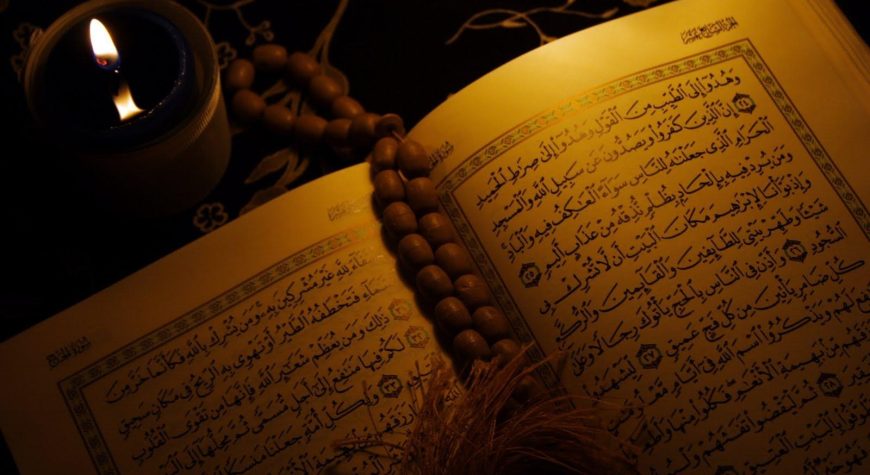 الجزء السابع عشر
وَهُدُوٓا۟ إِلَى ٱلطَّيِّبِ مِنَ ٱلْقَوْلِ وَهُدُوٓا۟ إِلَىٰ صِرَٰطِ ٱلْحَمِيدِ
٢٤ إِنَّ ٱلَّذِينَ كَفَرُوا۟ وَيَصُدُّونَ عَن سَبِيلِ ٱللَّهِ وَٱلْمَسْجِدِ
ٱلْحَرَامِ ٱلَّذِى جَعَلْنَٰهُ لِلنَّاسِ سَوَآءً ٱلْعَٰكِفُ فِيهِ وَٱلْبَادِ
وَمَن يُرِدْ فِيهِ بِإِلْحَادٍۭ بِظُلْمٍ نُّذِقْهُ مِنْ عَذَابٍ أَلِيمٍ ٢٥
وَإِذْ بَوَّأْنَا لِإِبْرَٰهِيمَ مَكَانَ ٱلْبَيْتِ أَن لَّا تُشْرِكْ بِى
شَيْـًٔا وَطَهِّرْ بَيْتِىَ لِلطَّآئِفِينَ وَٱلْقَآئِمِينَ وَٱلرُّكَّعِ
ٱلسُّجُودِ ٢٦ وَأَذِّن فِى ٱلنَّاسِ بِٱلْحَجِّ يَأْتُوكَ رِجَالًا وَعَلَىٰ
كُلِّ ضَامِرٍ يَأْتِينَ مِن كُلِّ فَجٍّ عَمِيقٍ ٢٧ لِّيَشْهَدُوا۟
لَهُمْ وَيَذْكُرُوا۟ ٱسْمَ ٱللَّهِ فِىٓ أَيَّامٍ
مِّنۢ بَهِيمَةِ ٱلْأَنْعَٰمِ فَكُلُوا۟ مِنْهَا
٢٨ ثُمَّ لْيَقْضُوا۟ تَفَثَهُمْ
بِٱلْبَيْتِ ٱلْعَتِيقِ
سورة الحج
لِلَّهِ غَيْرَ مُشْرِكِينَ بِهِۦ وَمَن يُشْرِكْ بِٱللَّهِ فَكَأَنَّمَا خَرَّ مِنَ
فَتَخْطَفُهُ ٱلطَّيْرُ أَوْ تَهْوِى بِهِ ٱلرِّيحُ فِى مَكَانٍ سَحِيقٍ
ذَٰلِكَ وَمَن يُعَظِّمْ شَعَٰٓئِرَ ٱللَّهِ فَإِنَّهَا مِن تَقْوَى ٱلْقُلُوبِ
لَكُمْ فِيهَا مَنَٰفِعُ إِلَىٰٓ أَجَلٍ مُّسَمًّى ثُمَّ مَحِلُّهَآ إِلَى
وَلِكُلِّ أُمَّةٍ جَعَلْنَا مَنسَكًا